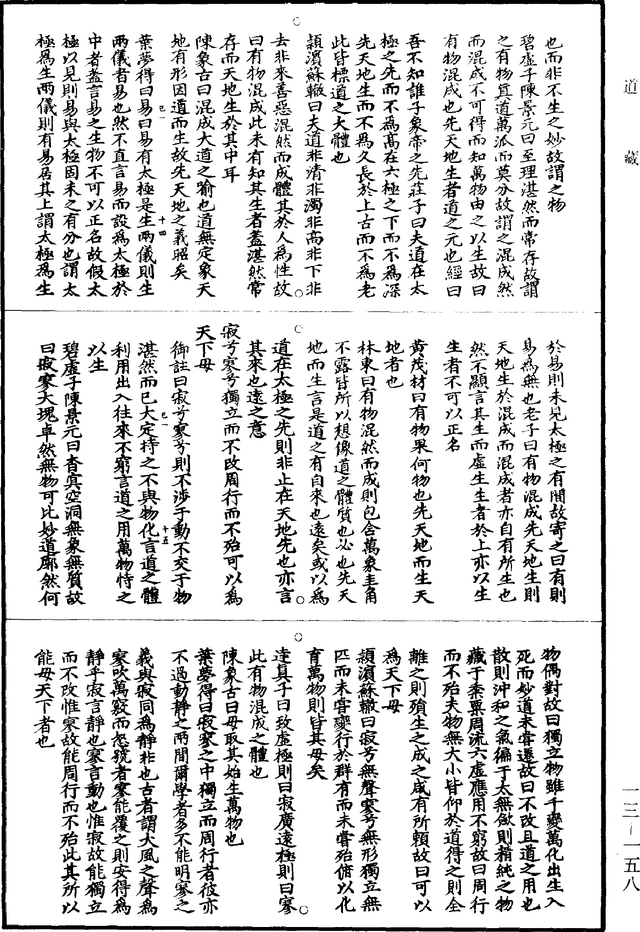 道藏
也而非不生之妙故謂之物
碧虛子陳景元曰至理湛然而常存故謂
之有物萬道萬派而莫分故謂之混成然
而混成不可得而知萬物由之以生故曰
有物混成也先天地生者道之元也經曰
吾不知誰子象帝之先莊子曰夫道在太
極之先而不為高在六極之下而不為深
先天地生而不為久長於上古而不為老
此皆標道之大體也
潁濱蘇轍曰夫道非清非濁非高非下非
去非來善惡混然而成體其於人為性故
曰有物混成此未有知其生者蓋湛然常
存而天地生於其中耳
陳象古曰混成大道之喻也道無定象天
地有形因道而生故先天地之義昭矣
葉夢得曰易曰易有太極是生兩儀則生
兩儀者易也然不直言易而設為太極於
中者蓋言易之生物不可以正名故假太
極以見則易與太極固未之有分也謂太
極為生兩儀則有易居其上謂太極為生
於易則未見太極之有間故寄之曰有則
易為無也老子曰有物混成先天地生則
天地生於混成而混成者亦自有所生也
然不顯言其生而虛生生者於上亦以生
生者不可以正名
黃茂材曰有物果何物也先天地而生天
地者也
林東曰有物混然而成則包含萬象圭角
不露皆所以想像道之體質也必也先天
地而生言是道之有自來也遠矣或以為
道在太極之先則非止在天地先也亦言
其來也遠之意
寂兮寥兮獨立而不改周行而不殆可以為
天下母
御註曰寂兮寥兮則不涉于動不交于物
湛然而已大定持之不與物化言道之體
利用出入往來不窮言道之用萬物恃之
以生
碧虛子陳景元曰杳冥空洞無象無質故
曰寂寥大塊卓然無物可比妙道廓然何
物偶對故曰獨立物雖千變萬化出生入
死而妙道未嘗遷故曰不改且道之用也
散則沖和之氣徧于太無斂則精純之物
藏于黍粟周流六虛應用不窮故曰周行
而不殆夫物無大小皆仰於道得之則全
離之則殞生之成之咸有所賴故曰可以
為天下母
潁濱蘇轍曰寂兮無聲寥兮無形獨立無
匹而未嘗變行於群有而未嘗殆俯以化
育萬物則皆其母矣
達真子曰致虛極則曰寂廣遠極則曰寥
此有物混成之體也
陳象古曰母取其始生萬物也
葉夢得曰寂寥之中獨立而周行者彼亦
不過動靜之兩間爾學者多不能明寥之
義與寂同為靜非也古者謂大風之聲為
寥吹萬竅而怒號者寥能覆之則安得為
靜乎寂言靜也寥言動也惟寂故能獨立
而不改惟寥故能周行而不殆此其所以
能母天下者也
十四
十五
一三—一五八